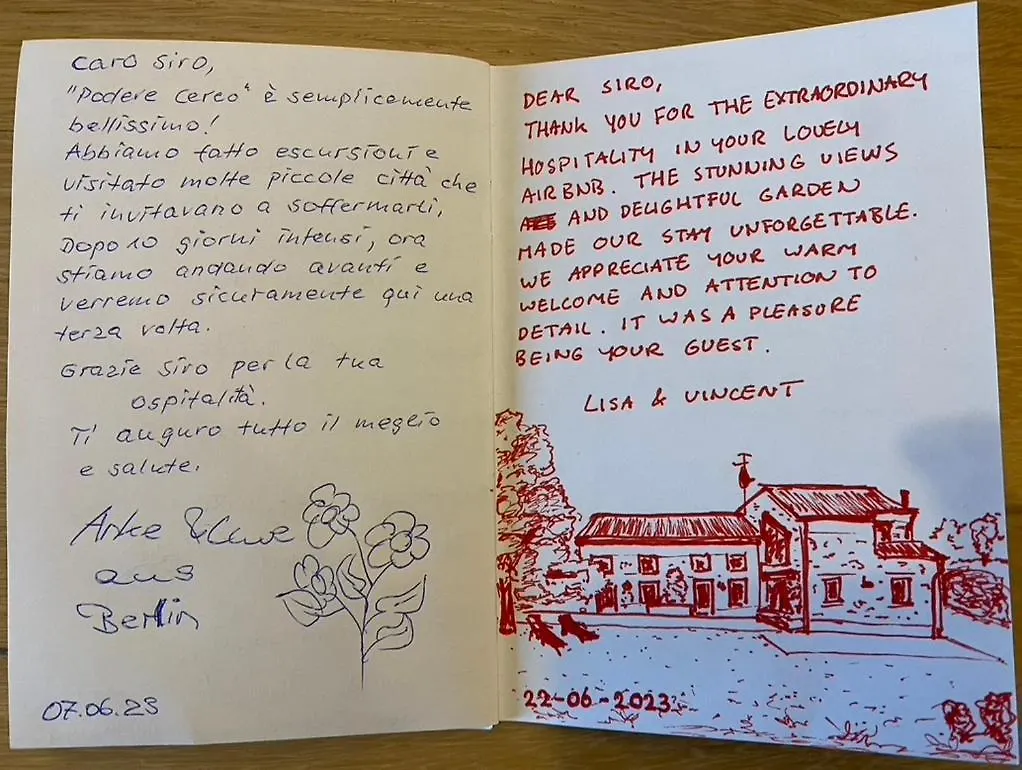 Caro Siro,
"Podere Cereo" è semplicemente
bellissimo!
Abbiamo fatto escursioni e
visitato molte piccole città che
ti invitavano a soffermarti,
Dopo 10 giorni intensi, ora
stiamo andando avanti e
verremo sicuramente qui una
terza volta.
Grazie Siro per la tua
ospitalità.
Ti auguro tutto il meglio
e salute.
&
aus
Berlin
07.06.23
DEAR SIRO,
THANK YOU FOR THE EXTRAORDINARY
HOSPITALITY IN YOUR LOVELY
AIRBNB. THE STUNNING VIEWS
AND DELIGHTFUL GARDEN
MADE OUR STAY UNFORGETTABLE.
WE APPRECIATE YOUR WARM
WELCOME AND ATTENTION TO
DETAIL. IT WAS A PLEASURE
BEING YOUR GUEST.
LISA & VINCENT
22-06-2023